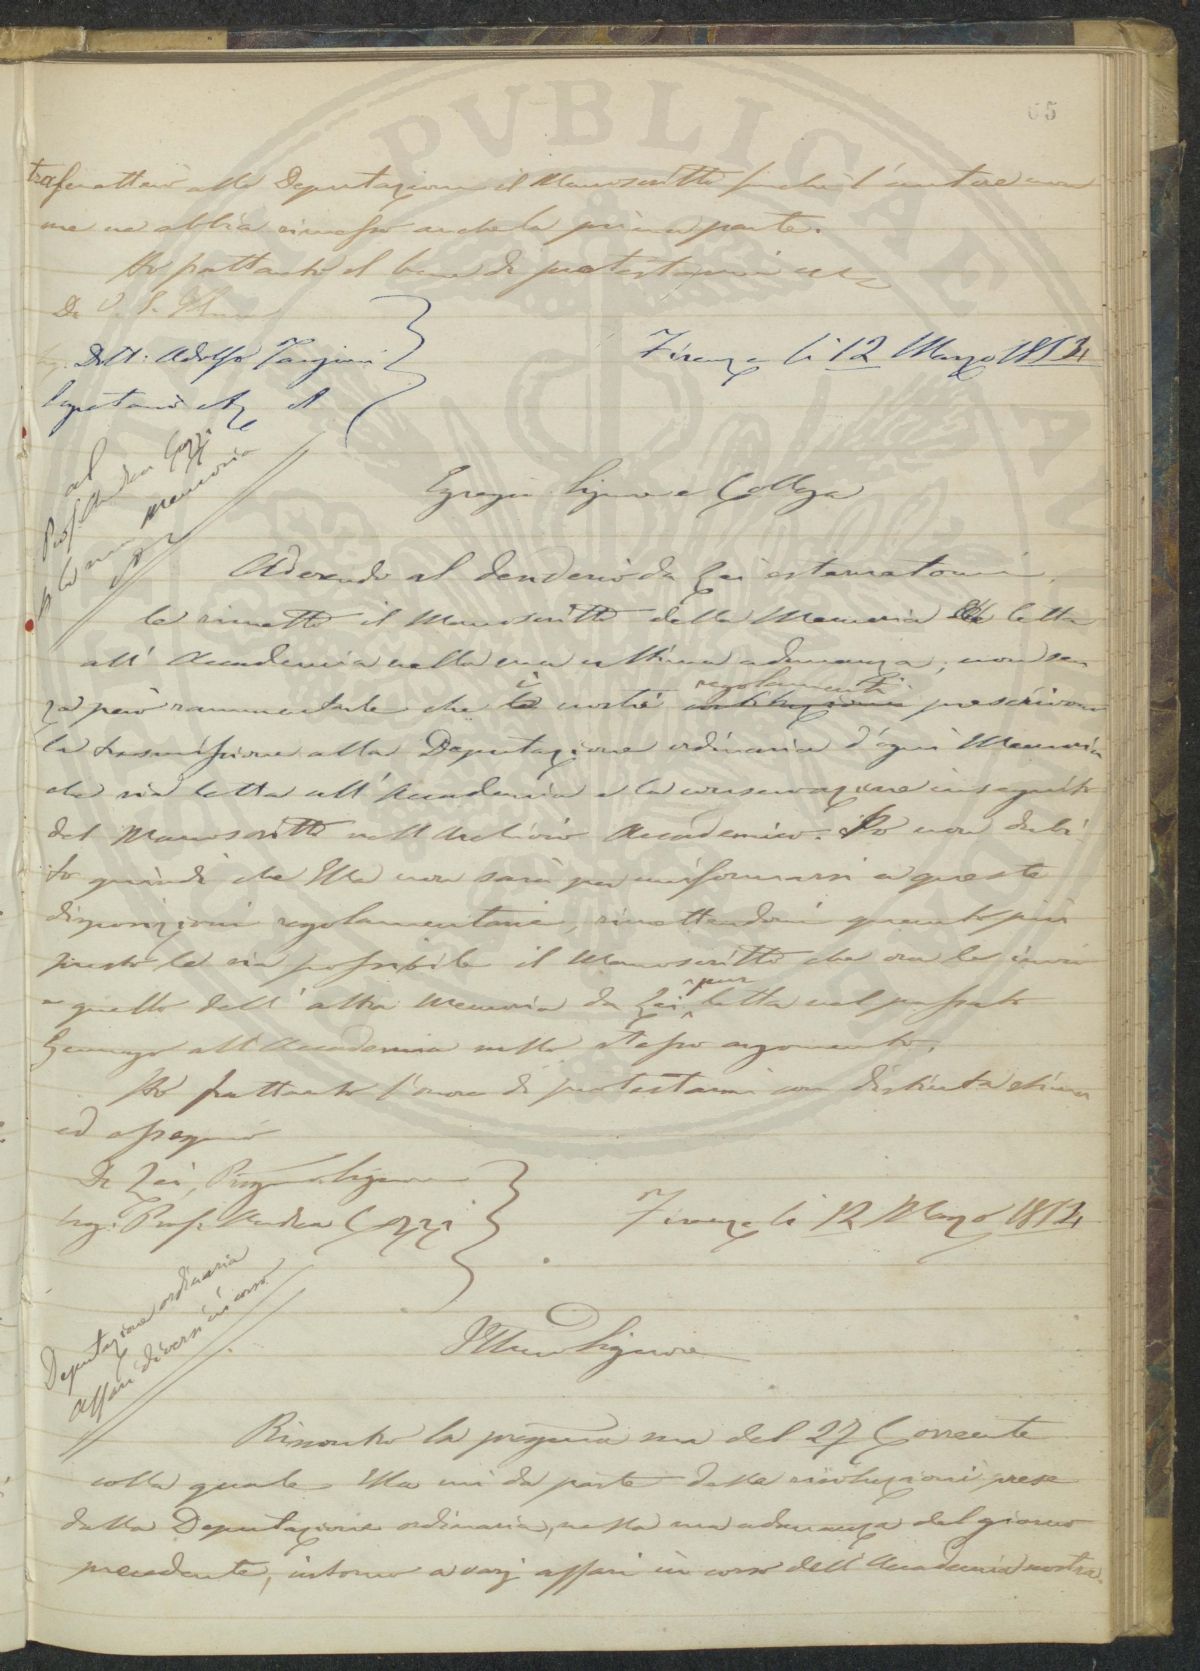 65
trasmetterò alla Deputazione il Manoscritto finché l'autore non
me ne abbia rimesso anche la prima parte.
Ho frattanto il bene di protestarmi
Di V. S. Illma
Sig. Dott. Adolfo Targioni
Segretario
Firenze li 12 Marzo 1874
al
Prof. Andrea Cozzi
p la sua memoria
Egregio Signore e Collega
Aderendo al desiderio da Lei esternatomi,
le rimetto il Manoscritto della Memoria letta
all' Accademia nella sua ultima adunanza, non sen
za però rammentarle che i nostri regolamenti prescrivono
la trasmissione alla Deputazione ordinaria d'ogni Memoria
che sia letta all' Accademia e la conservazione in seguito
del Manoscritto nell'Archivio Accademico. Io non dubi
to quindi che Ella non sarà per uniformarsi a queste
disposizioni regolamentarie, rimettendomi quanto più
presto le sia possibile il Manoscritto che ora le invio
e quello dell' altra Memoria da Lei pur letta nel passato
Gennajo all' Accademia sullo stesso argomento.
Ho frattanto l'onore di protestarmi con distinta stima
ed ossequio
Di Lei, Pregmo. Signore
Sig. Prof. Andrea Cozzi
Firenze li 12 Marzo 1874
Deputazione ordinaria
Affari diversi in corso
Illmo Signore
Riscontro la pregma sua del 27 Corrente
colla quale Ella mi dà parte delle risoluzioni prese
dalla Deputazione ordinaria, nella sua adunanza del giorno
precedente, intorno a varj affari in corso dell' Accademia nostra.